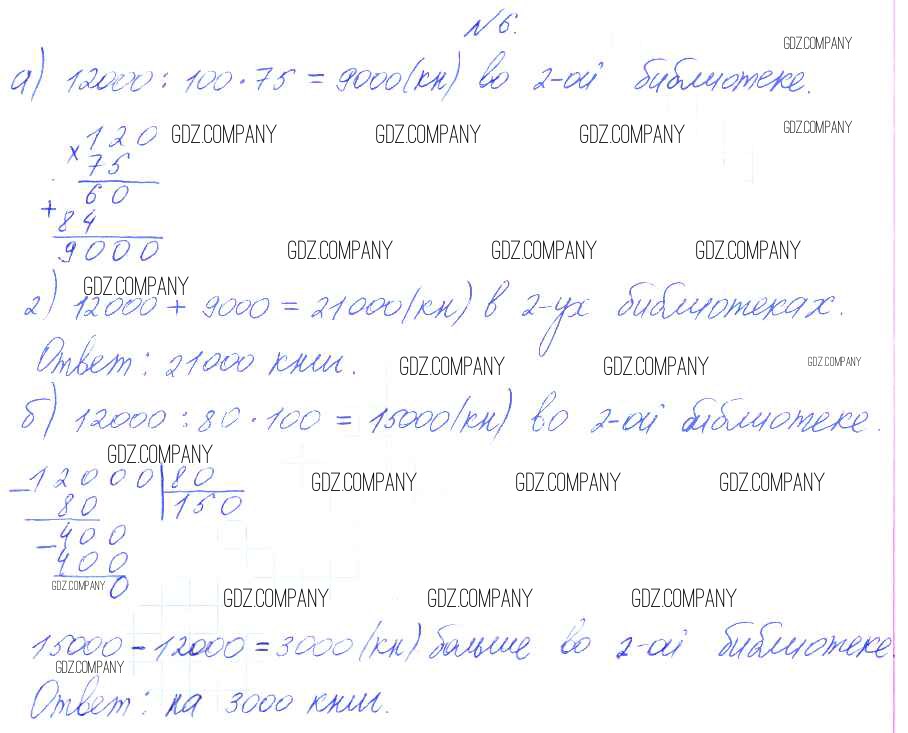 №6.
GDZ.COMPANY
а) 12000 : 100 · 75 = 9000 (кн) во 2-ой библиотеке.
× 120 GDZ.COMPANY GDZ.COMPANY GDZ.COMPANY GDZ.COMPANY
75
60
+
84
9000 GDZ.COMPANY GDZ.COMPANY GDZ.COMPANY
GDZ.COMPANY
2) 12000 + 9000 = 21000 (кн) в 2-ух библиотеках.
Ответ: 21000 книг. GDZ.COMPANY GDZ.COMPANY GDZ.COMPANY
б) 12000 : 80 · 100 = 15000 (кн) во 2-ой библиотеке.
GDZ.COMPANY
– 12000 | 80 GDZ.COMPANY GDZ.COMPANY GDZ.COMPANY
80 | 150
– 400
400
GDZ.COMPANY 0
GDZ.COMPANY GDZ.COMPANY GDZ.COMPANY
15000 – 12000 = 3000 (кн) больше во 2-ой библиотеке
GDZ.COMPANY
Ответ: на 3000 книг.